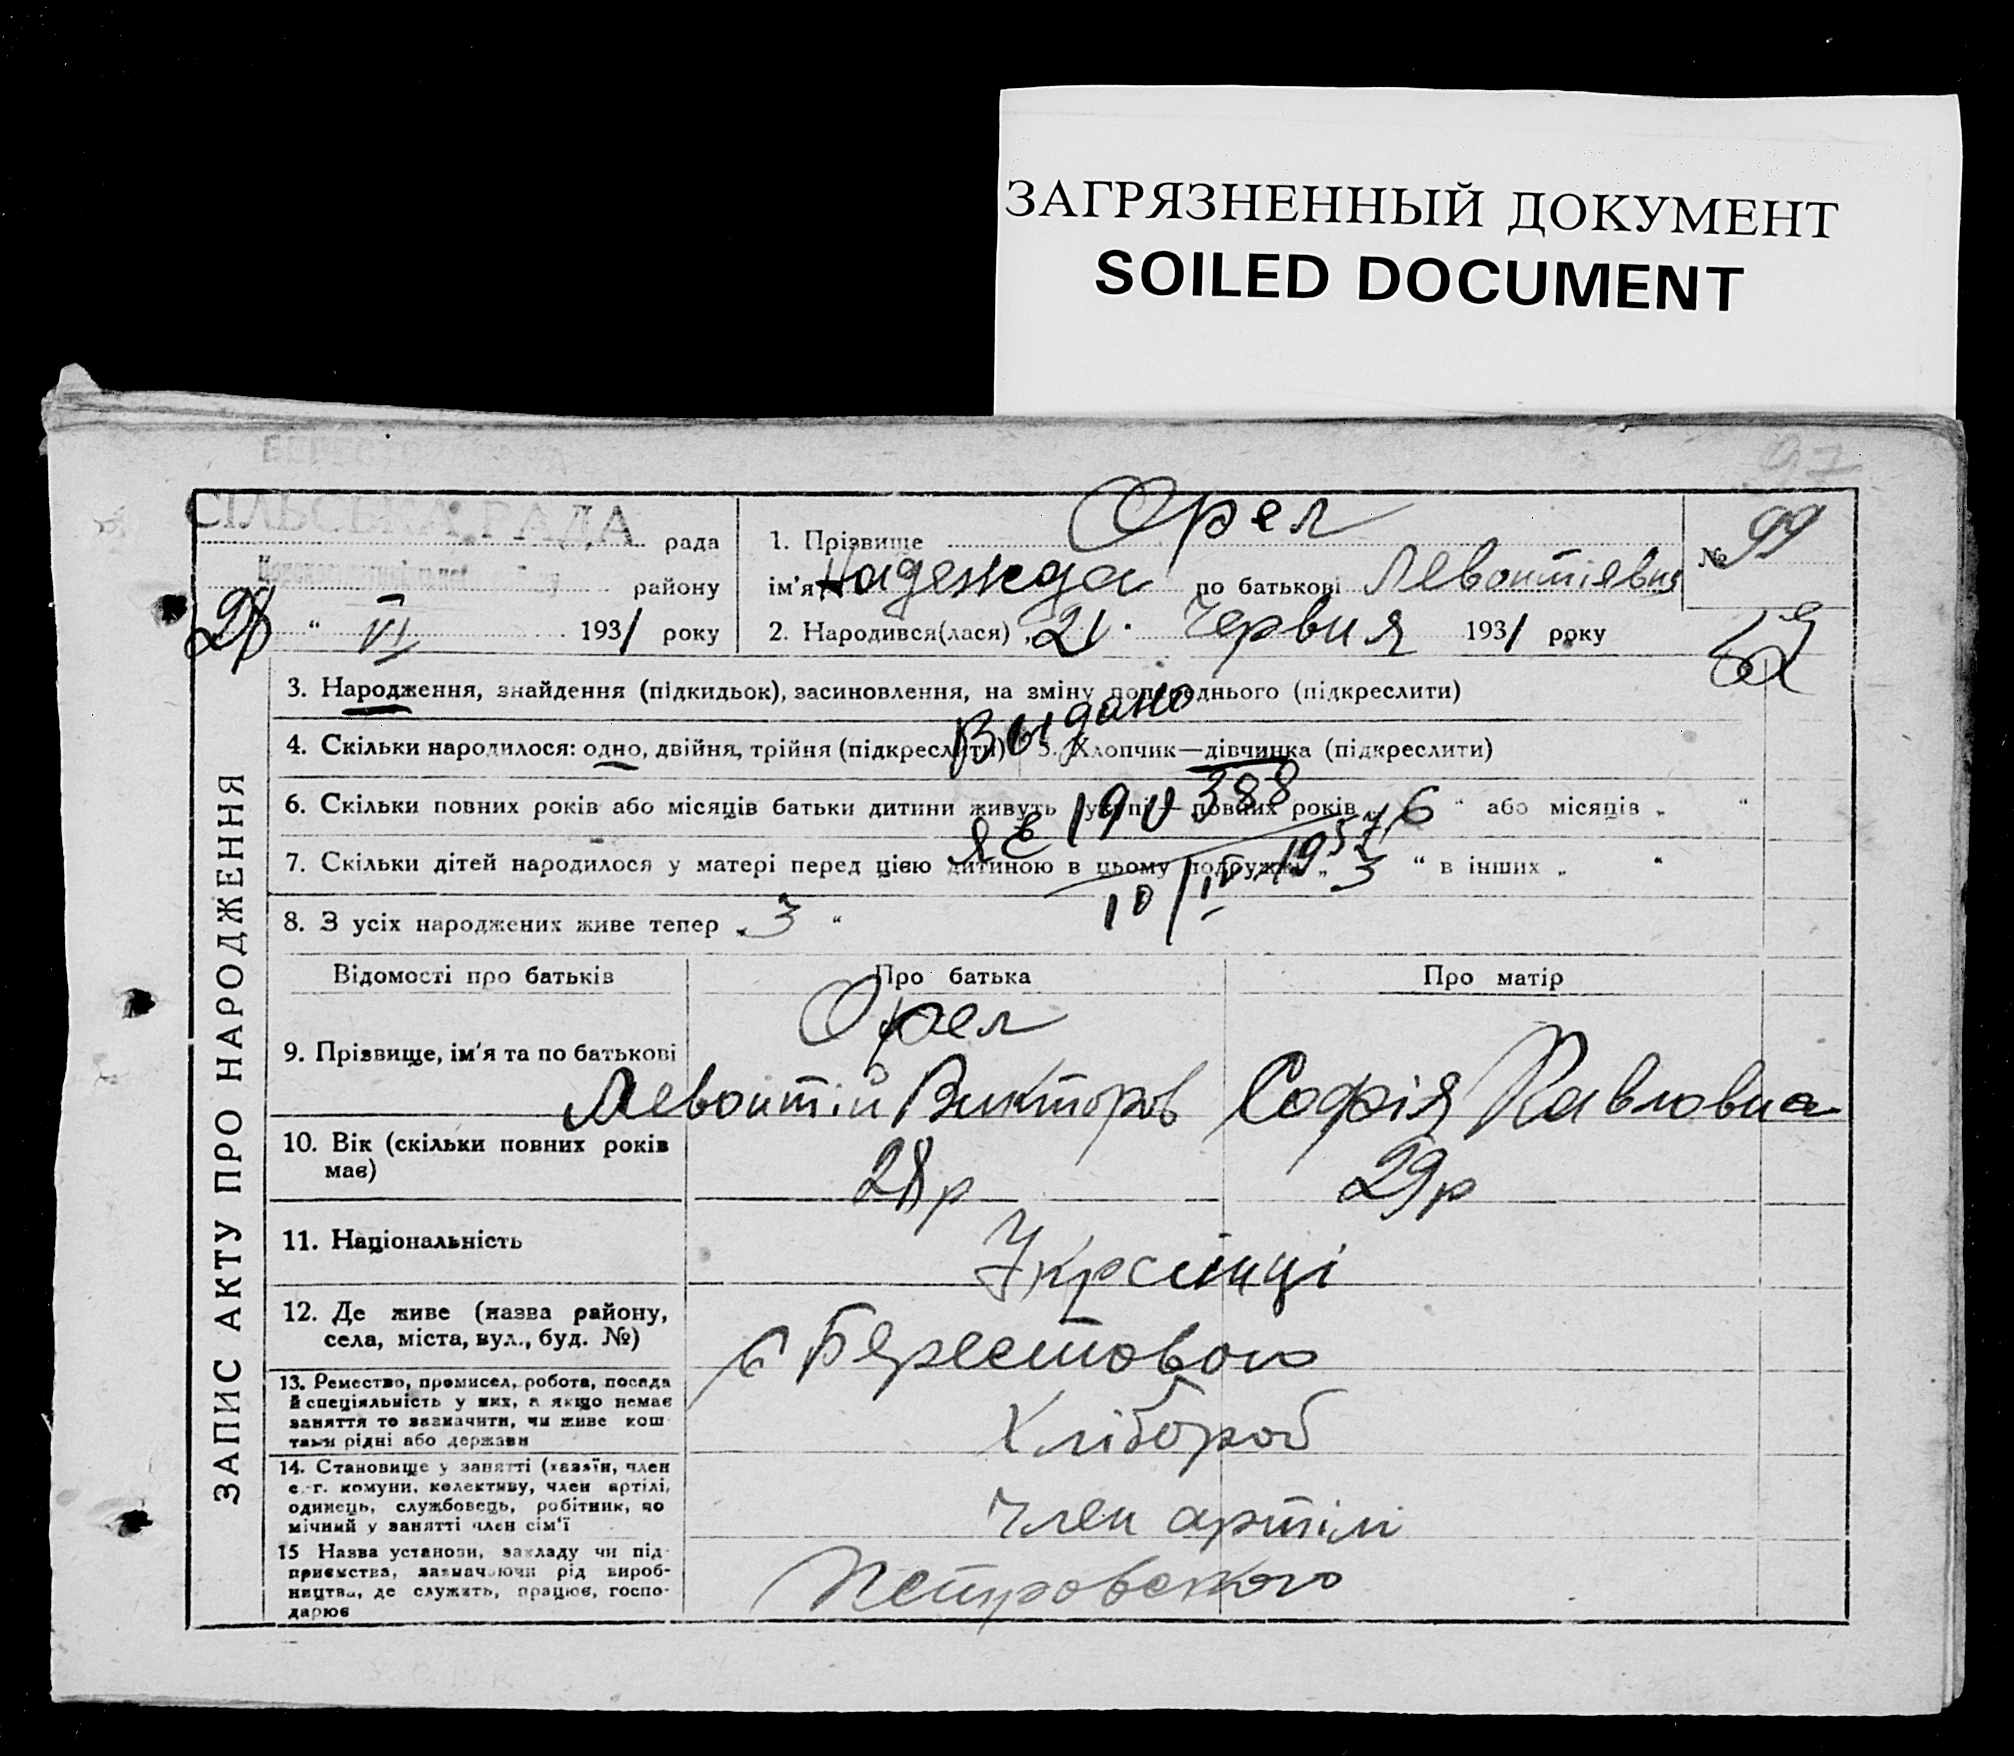 ЗАГРЯЗНЕННЫЙ ДОКУМЕНТ
SOILED DOCUMENT
97
СІЛЬСЬКА РАДА рада
району
28 " VI 1931 року
1. Прізвище Орел
ім'я Надежда по батькові Левонтіевна
2. Народився(лася) 21. Червня 1931 року
№ 99
ЗАПИС АКТУ ПРО НАРОДЖЕННЯ
3. Народження, знайдення (підкидьок), засиновлення, на зміну попереднього (підкреслити)
Выдано
4. Скільки народилося: одно, двійня, трійня (підкреслити) 5. Хлопчик—дівчинка (підкреслити)
6. Скільки повних років або місяців батьки дитини живуть укупі — повних років „ 6 " або місяців „ "
7. Скільки дітей народилося у матері перед цією дитиною в цьому подружжі „ 3 " в інших „ "
10/IV 1957
8. З усіх народжених живе тепер „ 3 "
Відомості про батьків Про батька Про матір
9. Прізвище, ім'я та по батькові Орел
Левонтій Викторов Софія Павловна
10. Вік (скільки повних років має) 28р 29р
11. Національність Українці
12. Де живе (назва району,
села, міста, вул., буд. №) с Берестового
13. Ремество, промисел, робота, посада
й спеціяльність у них, а якщо немає
заняття то зазначити, чи живе кош
тами рідні або держави Хлібороб
14. Становище у занятті (хазяїн, член
с.-г. комуни, колективу, член артілі,
одинець, службовець, робітник, по
мічний у занятті член сім'ї Член артілі
15 Назва установи, закладу чи під-
приємства, зазначаючи рід вироб-
ництва, де служить, працює, госпо-
дарює Петровского